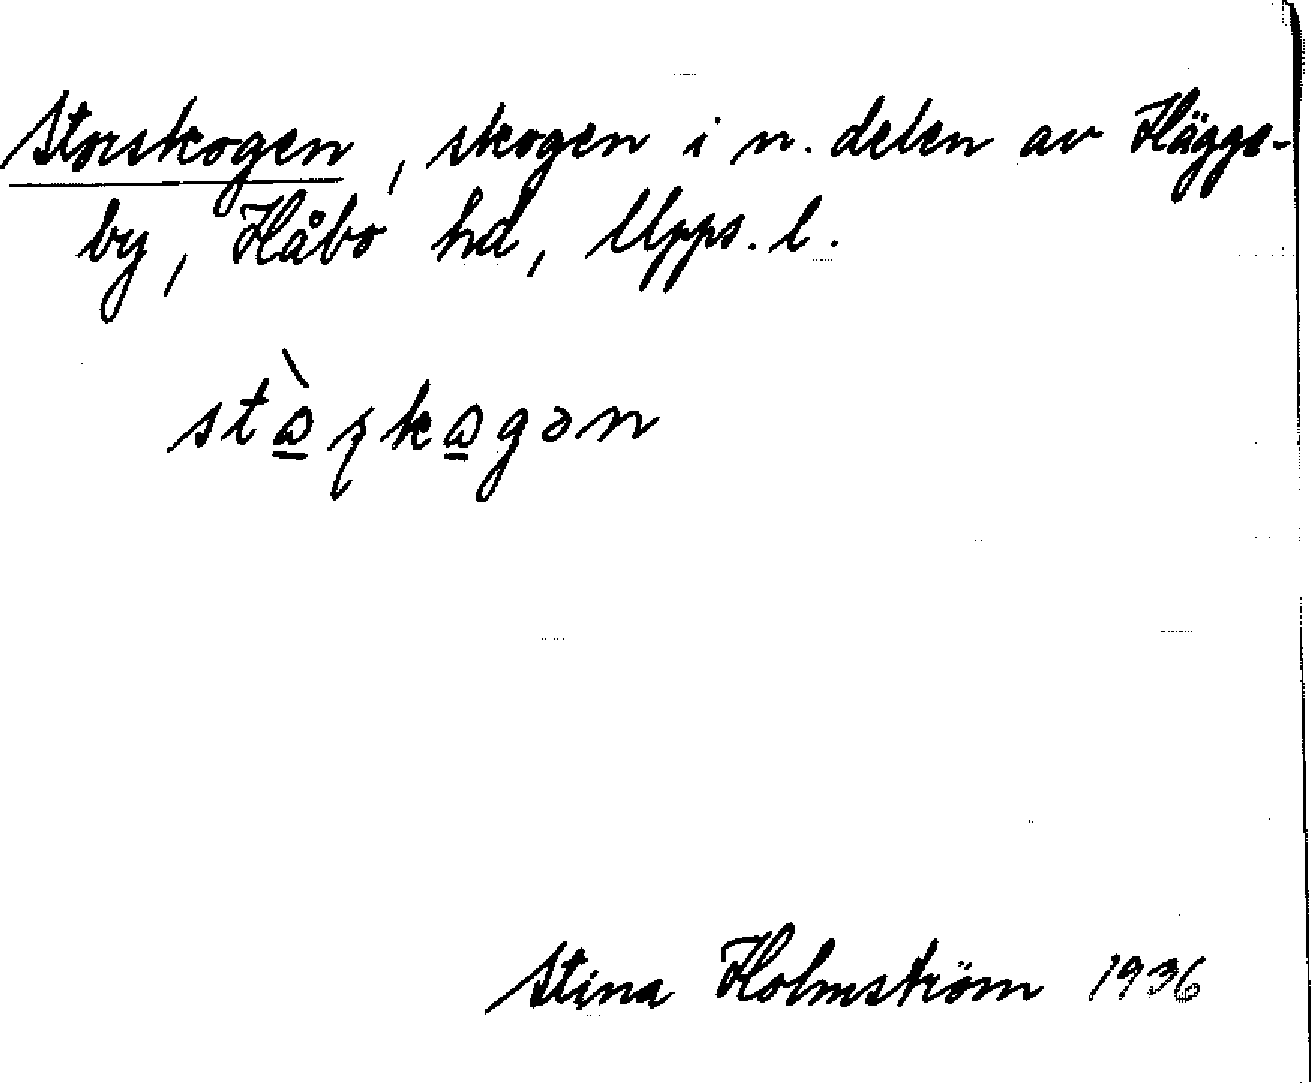 Storskogen, skogen i n. delen av Häggs-
by, Håbo hd, Upps. l.
Stina Holmström 1936